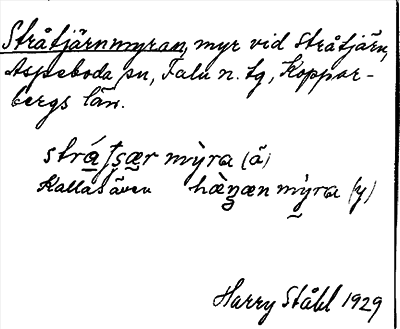 Stråtjärnmyran, myr vid Stråtjärn,
Aspeboda sn, Falu n. tg, Koppar-
bergs län.
strá̱ʈʂæ̱r mỳra (ä)
Kallas även hæ̀n̠æn mỳra (y)
Harry Ståhl 1929